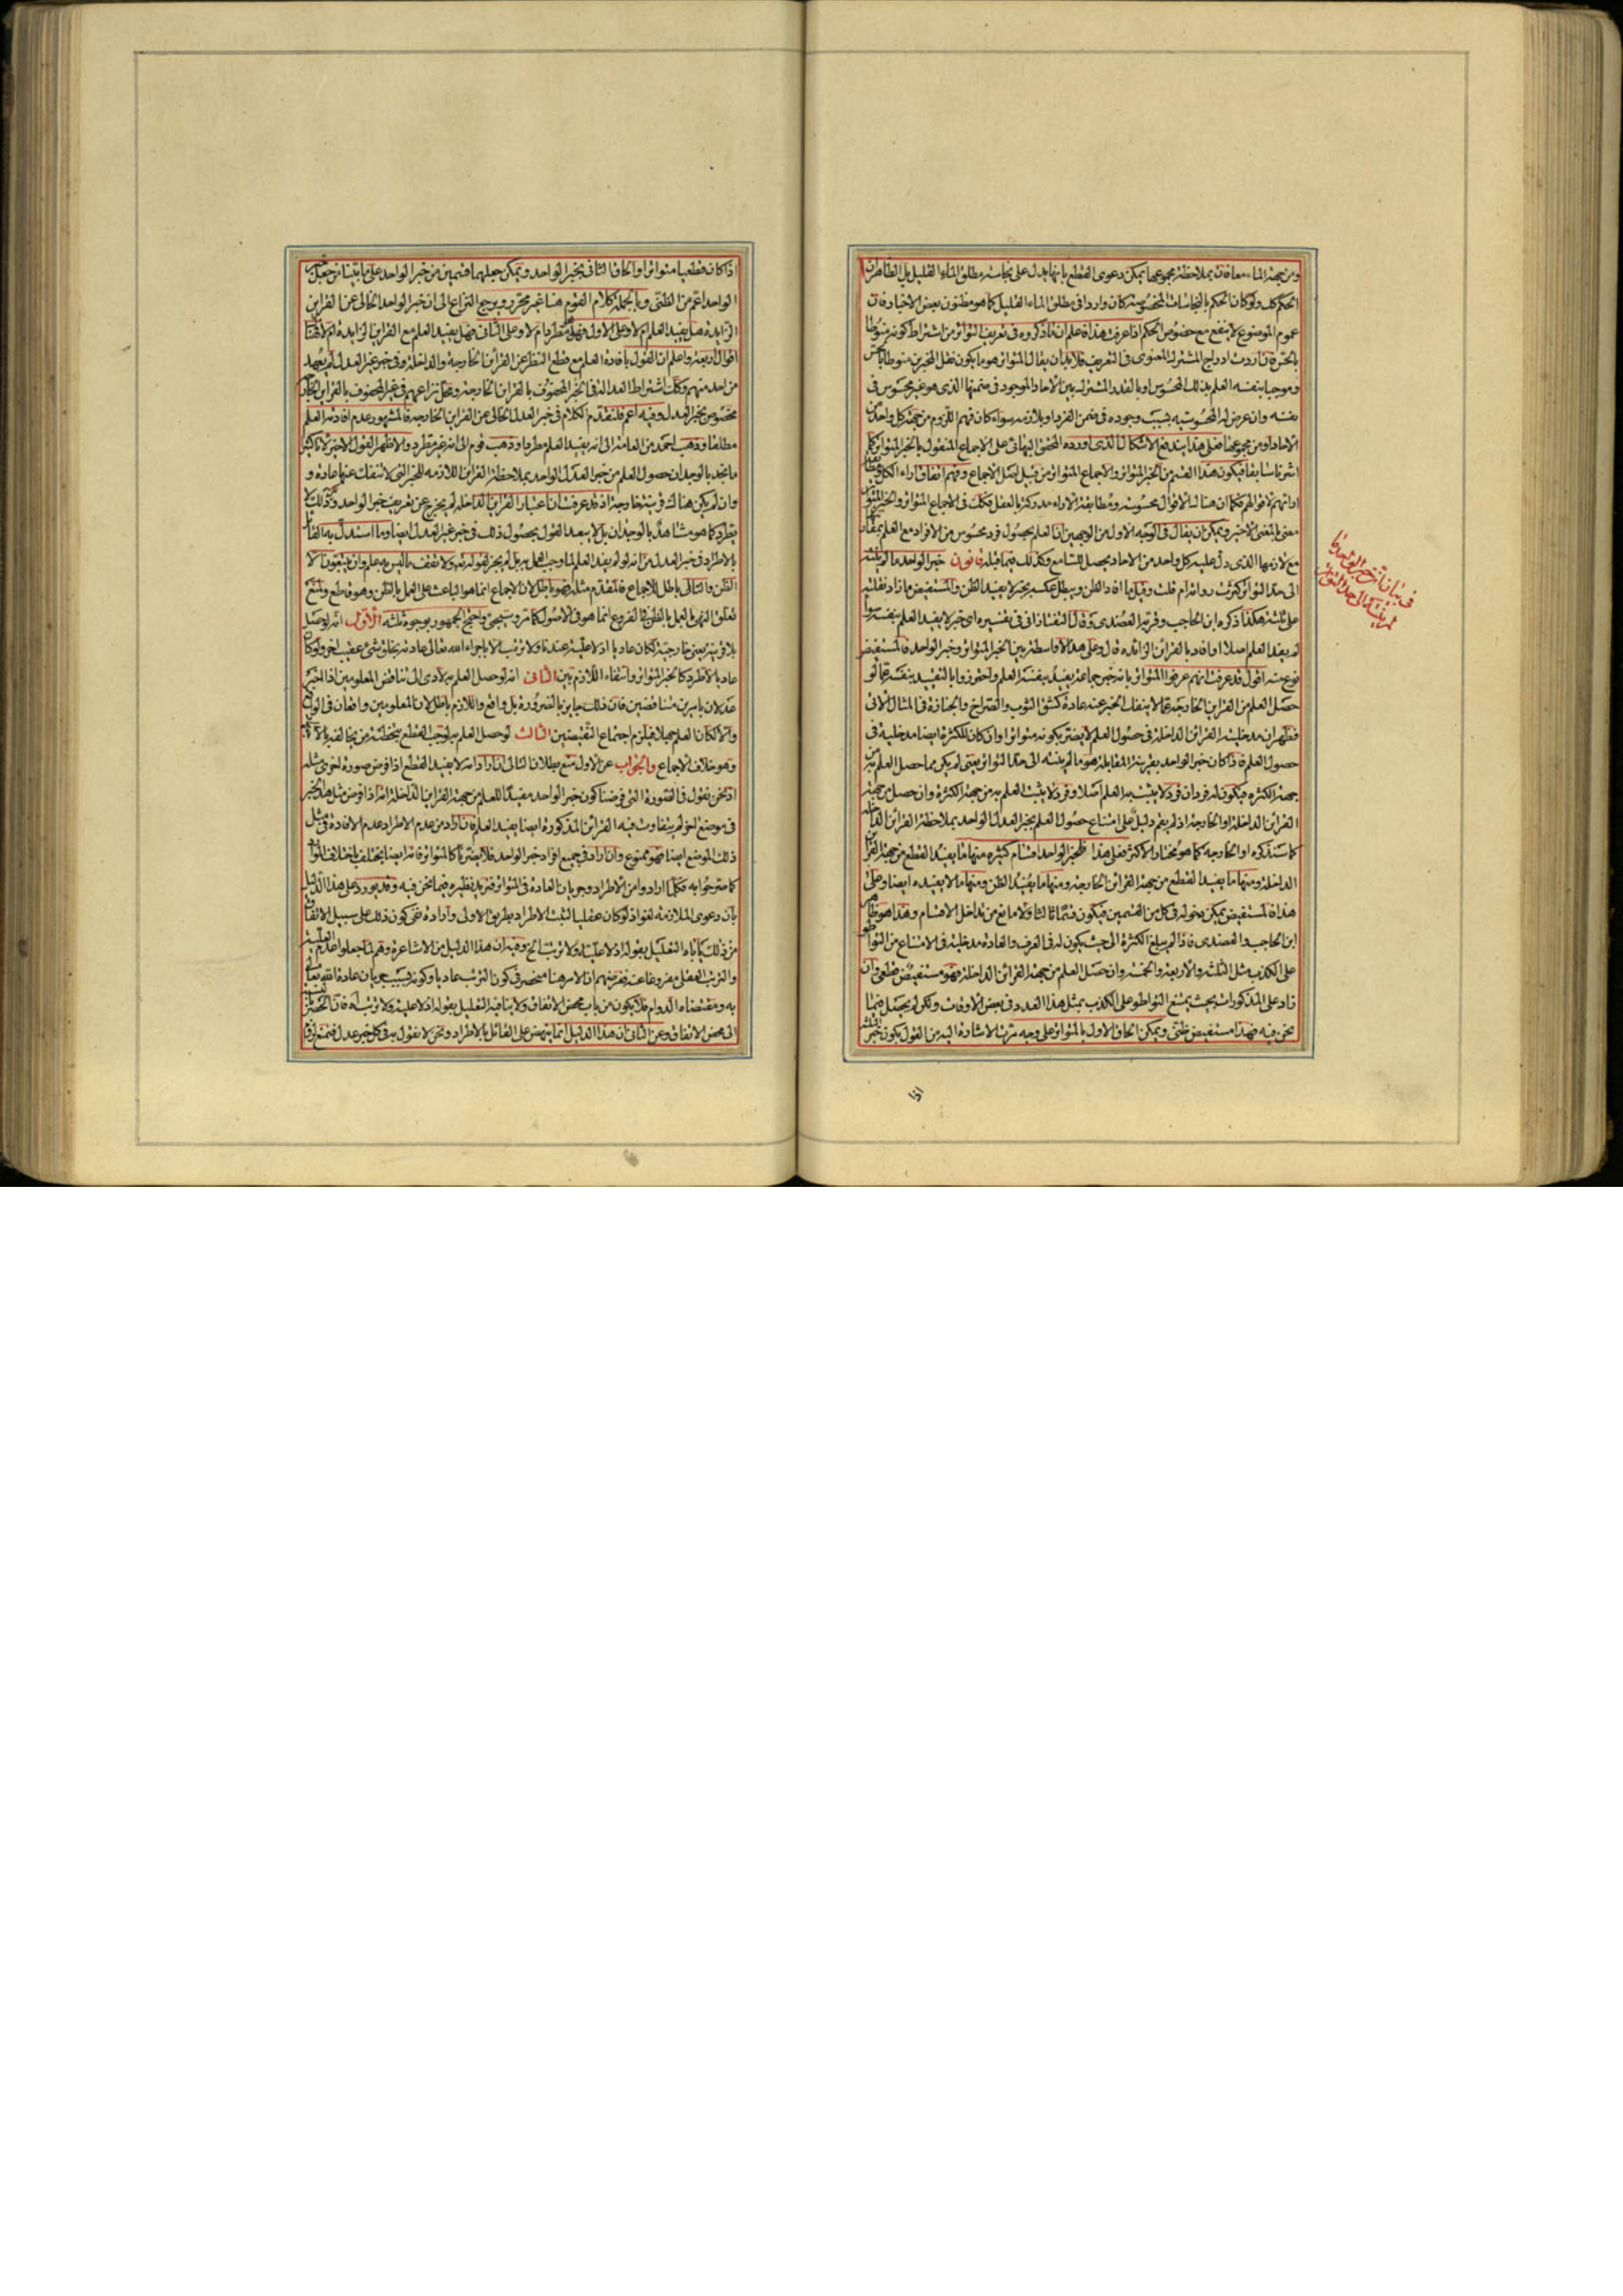 ومن جهة الماء معا فان بملاحظة مجموعها يمكن دعوى القطع بانها يدل على نجاسة مطلق الماء القليل بل الظاهر ان
الحكم كل ولو كان الحكم بالنجاسات المخصوصة كان واردا فى مطلق الماء القليل كما هو مظنون بعض الاخبار فان
عموم الموضوع لا ينفع مع خصوص الحكم اذا عرفت هذا فاعلم ان ما ذكروه فى تعريف التواتر من اشتراط كونه منوطا
بالحس فان اردت ادراج المشترك المعنوى فى التعريف فلا بد ان يقال المتواتر هو ما يكون نقل المخبرين منوطا بالحس
وموجبا بنفسه العلم بذلك المحسوس او بالقدر المشترك بين الآحاد الموجود فى ضمنها الذى هو غير محسوس فى
نفسه وان عرض له المحسوسية بسبب وجوده فى ضمن الفرد او بلازمه سواء كان فهم اللزوم من جهة كل واحد من
الآحاد او من مجموعها فعلى هذا يندفع الاشكال الذى اورده المحقق البهائى على الاجماع المنقول بالخبر المتواتر كما
اشرنا سابقا فيكون هذا القسم من الخبر المتواتر والاجماع المتواتر من قبيل اصل الاجماع وفهم اتفاق اراء الكل
معنى بالمعنى الاخير ويمكن ان يقال فى التوجيه الاول من الوجهين ان العلم بحصول فرد محسوس من الافراد مع العلم
مع لازمها الذى دل عليه كل واحد من الآحاد يحصل للسامع وكذلك فيما قبله قانون خبر الواحد ما لم ينته
الى حد التواتر كثرت رواته ام قلت وقيل ما افاد الظن ويبطل عكسه بخبر لا يفيد الظن والمستفيض ما زاد نقلته
على ثلثة هكذا ذكره ابن الحاجب وقرره العضدى وقال التفتازانى فى تفسيره اى خبر لا يفيد العلم بنفسه سواء
لم يفد العلم اصلا او افاده بالقرائن الزائدة قال وعلى هذا لا واسطة بين الخبر المتواتر وخبر الواحد فالمستفيض
نوع منه اقول قد عرفت انهم عرفوا المتواتر بانه خبر جماعة يفيد بنفسه العلم واحترزوا بالتقييد بنفسه عما لو
حصل العلم من القراين الخارجة مما لا ينفك الخبر عنه عادة كشق الثوب والصراخ والجنازة فى المثال الآتى
فظهر ان مدخلية القرائن الداخلة فى حصول العلم لا يضر بكونه متواترا وان كان للكثرة ايضا مدخلية فى
حصول العلم فاذا كان خبر الواحد بقرينة المقابلة هو ما لم ينته الى حد التواتر يعنى لم يكن مما حصل العلم به من
جهة الكثرة فيكون له فردان فرد لا يثبت به العلم اصلا وفرد لا يثبت العلم به من جهة الكثرة وان حصل من جهة
القرائن الداخلة او الخارجة اذ لم يقم دليل على امتناع حصول العلم بخبر العدل الواحد بملاحظة القرائن الداخلة
كما سنذكره او الخارجه كما هو مختار الاكثر فعلى هذا فلخبر الواحد اقسام كثيره منها ما يفيد القطع من جهة القرائن
الداخلة ومنها ما يفيد القطع من جهة القرائن الخارجة ومنها ما يفيد الظن ومنها ما لا يفيده ايضا وعلى
هذا فالمستفيض يمكن دخوله فى كل من القسمين فيكون قسما ثالثا ولا مانع من تداخل الاقسام وهذا هو ظاهر
ابن الحاجب والعضدى فاذا لم يبلغ الكثرة الى حيث يكون له فى العرف والعادة مدخلية فى الامتناع من التواطؤ
على الكذب مثل الثلثة والاربعة والخمسة وان حصل العلم من جهة القرائن الداخلة فهو مستفيض قطعى وان
زاد على المذكورات بحيث يمتنع التواطؤ على الكذب بمثل هذا العدد فى بعض الاوقات ولكن لم يحصل فيما
نحن فيه فهذا مستفيض ظنى ويمكن الحاق الاول بالمتواتر على وجه مرت الاشارة اليه من القول بكون خبر الثلثة
فى بيان ان خبر الواحد ما
لم ينته الى حد التواتر
اذا
اذا كان قطعيا متواترا والحاق الثانى بخبر الواحد ويمكن جعلهما قسمين من خبر الواحد على ما بينا من جعل خبر
الواحد اعم من الظنى وبالجملة كلام القوم هنا غير محرر ويرجع النزاع الى ان خبر الواحد الخالى عن القراين
الزايدة هل يفيد العلم ام لا وعلى الاول فهل هو مطرد ام لا وعلى الثانى فهل يفيد العلم مع القراين الزايدة ام لا فهنا
اقوال اربعة واعلم ان القول بافادة العلم مع قطع النظر عن القرائن الخارجة والداخلة وفى خبر غير العدل لم يعهد
من احد منهم وكك اشتراط العدالة فى الخبر المحفوف بالقراين الخارجة ومحل نزاعهم فى غير المحفوف بالقراين الخارجة
مخصوص بخبر العدل وفيه اعم فلنقدم الكلام فى خبر العدل الخالى عن القراين الخارجة فالمشهور عدم افادته العلم
مطلقا وذهب احمد من العامة الى انه يفيد العلم مطردا وذهب قوم الى انه غير مطرد والاظهر القول الاخير لانا كثيرا
ما نجد بالوجدان حصول العلم من خبر العدل الواحد بملاحظة القراين اللازمه للخبر التى لا تنفك عنها عادة و
وان لم يكن هناك قرينة خارجة اذ قد عرفت ان اعتبار القراين الداخلة لم يخرج عن تعريف خبر الواحد وذلك لا
يطرد كما هو مشاهد بالوجدان بل لا يبعد القول بحصول ذلك فى خبر غير العدل ايضا وما استدل به القائل
بالاطراد فى خبر العدل من انه لو لم يفد العلم لما وجب العمل به بل لم يجز لقوله تعالى ولا تقف ما ليس به علم وان يتبعون الا
الظن والتالى باطل للاجماع فالمقدم مثله فهو باطل لان الاجماع انما هو الباعث على العمل بالظن وهو قاطع ونمنع
تعلق النهى بالعمل بالظن فى الفروع انما هو فى الاصول كما مر وسيجئ واحتج الجمهور بوجوه ثلثه الاول انه لو حصل
بلا قرينة يعنى خارجية لكان عاديا اذ لا علية عندنا ولا ترتب الا باجراء الله تعالى عادته بخلق شئ عقيب اخر ولو كان
عاديا لاطرد كالخبر المتواتر وانتفاء اللازم بين الثانى انه لو حصل العلم به لادى الى تناقض المعلومين اذا اخبر
عدلان بامرين متناقضين فان ذلك جايز بالضرورة بل واقع واللازم باطل لان المعلومين واقعان فى الواقع
والا لكان العلم جهلا فيلزم اجتماع النقيضين الثالث لو حصل العلم به لوجب القطع بتخطئة من يخالفه بالاجتهاد
وهو خلاف الاجماع والجواب عن الاول منع بطلان التالى ان اراد انه لا يفيد القطع اذا فرض صورة اخرى مثله
اذ نحن نقول فى الصورة التى فرضنا كون خبر الواحد مفيدا للعلم من جهة القراين الداخلة انه اذا فرض مثل هذا الخبر
فى موضع اخر لم يتفاوت فيه القرائن المذكورة ايضا يفيد العلم فان اراد من عدم الاطراد عدم الافادة فى مثل
ذلك الموضع ايضا فهو ممنوع وان اراد فى جميع افراد خبر الواحد فلا يضرنا كالمتواتر فانه ايضا يختلف باختلاف الموارد
كما صرحوا به فكلما ارادوا من الاطراد وجريان العادة فى المتواتر فنريد نظيره فيما نحن فيه وقد يورد على هذا الدليل
بان دعوى الملازمة لغو اذ لو كان عقليا لثبت الاطراد بطريق الاولى واراده نفى كون ذلك على سبيل الاتفاق
من ذلك ياباه التعليل بقوله اذ لا علية ولا ترتب الخ وفيه ان هذا الدليل من الاشاعرة وهم لما جعلوا عدم العلية
والترتب العقلى مفروغا عنه فغرضهم ان الامر هنا منحصر فى كون الترتب عاديا وكونه بسبب جريان عادة الله تعالى
به ومقتضاه الدوام فلا يكون من باب محض الاتفاق ولا ينافيه التعليل بقوله اذ لا علية ولا ترتب
الى محض الاتفاق وعن الثانى ان هذا الدليل انما ينهض على القائل بالاطراد ونحن لا نقول به فى كل خبر عدل فنمنع